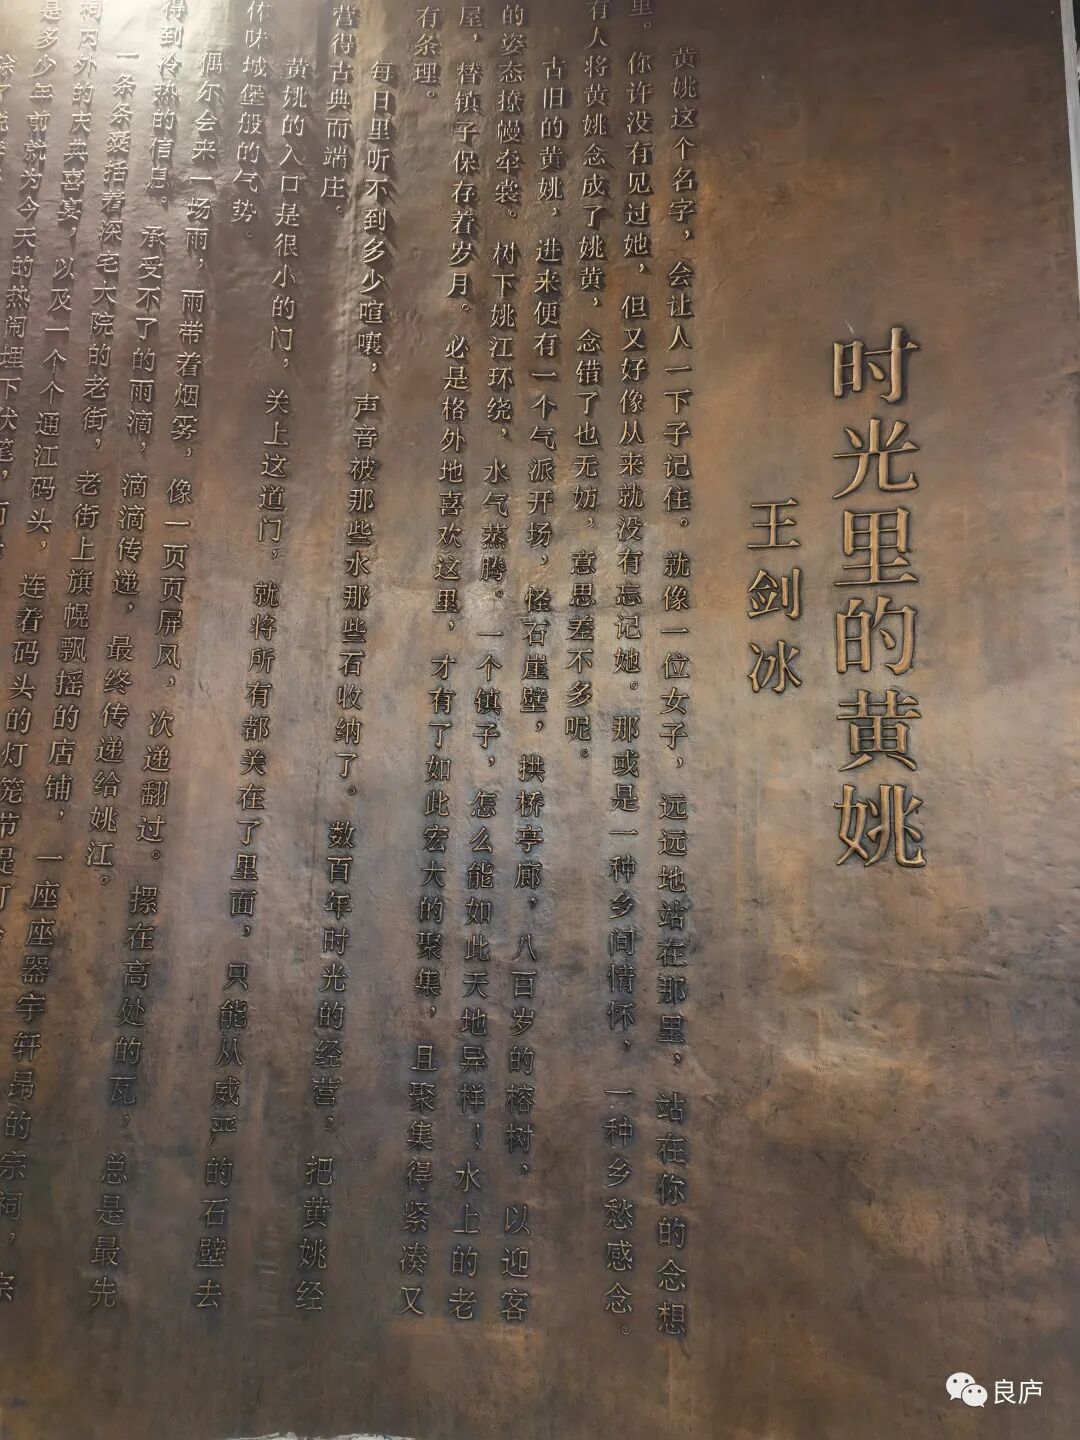 时光里的黄姚
王剑冰
黄姚这个名字，会让人一下子记住。就像一位女子，远远地站在那里，站在你的念想
里。你许没有见过她，但又好像从来就没有忘记她。那或是一种乡间情怀，一种乡愁感念。
有人将黄姚念成了姚黄，念错了也无妨，意思差不多呢。
古旧的黄姚，进来便有一个气派开场，怪石崖壁，拱桥亭廊，八百岁的榕树，以迎客
的姿态撩幔牵裳。树下姚江环绕，水气蒸腾。一个镇子，怎么能如此天地异样！水上的老
屋，替镇子保存着岁月。必是格外地喜欢这里，才有了如此宏大的聚集，且聚集得紧凑又
有条理。
每日里听不到多少喧嚷，声音被那些水那些石收纳了。数百年时光的经营，把黄姚经
营得古典而端庄。
黄姚的入口是很小的门，关上这道门，就将所有都关在了里面，只能从威严的石壁去
体味城堡般的气势。
偶尔会来一场雨，雨带着烟雾，像一页页屏风，次递翻过。摞在高处的瓦，总是最先
得到冷热的信息。承受不了的雨滴，滴滴传递，最终传递给姚江。
一条条囊括着深宅大院的老街，老街上旗幌飘摇的店铺，一座座器宇轩昂的宗祠，宗
祠内外的庆典喜宴，以及一个个通江码头，连着码头的灯笼节是
是多少年前就为今天的热闹埋下伏笔，
良庐